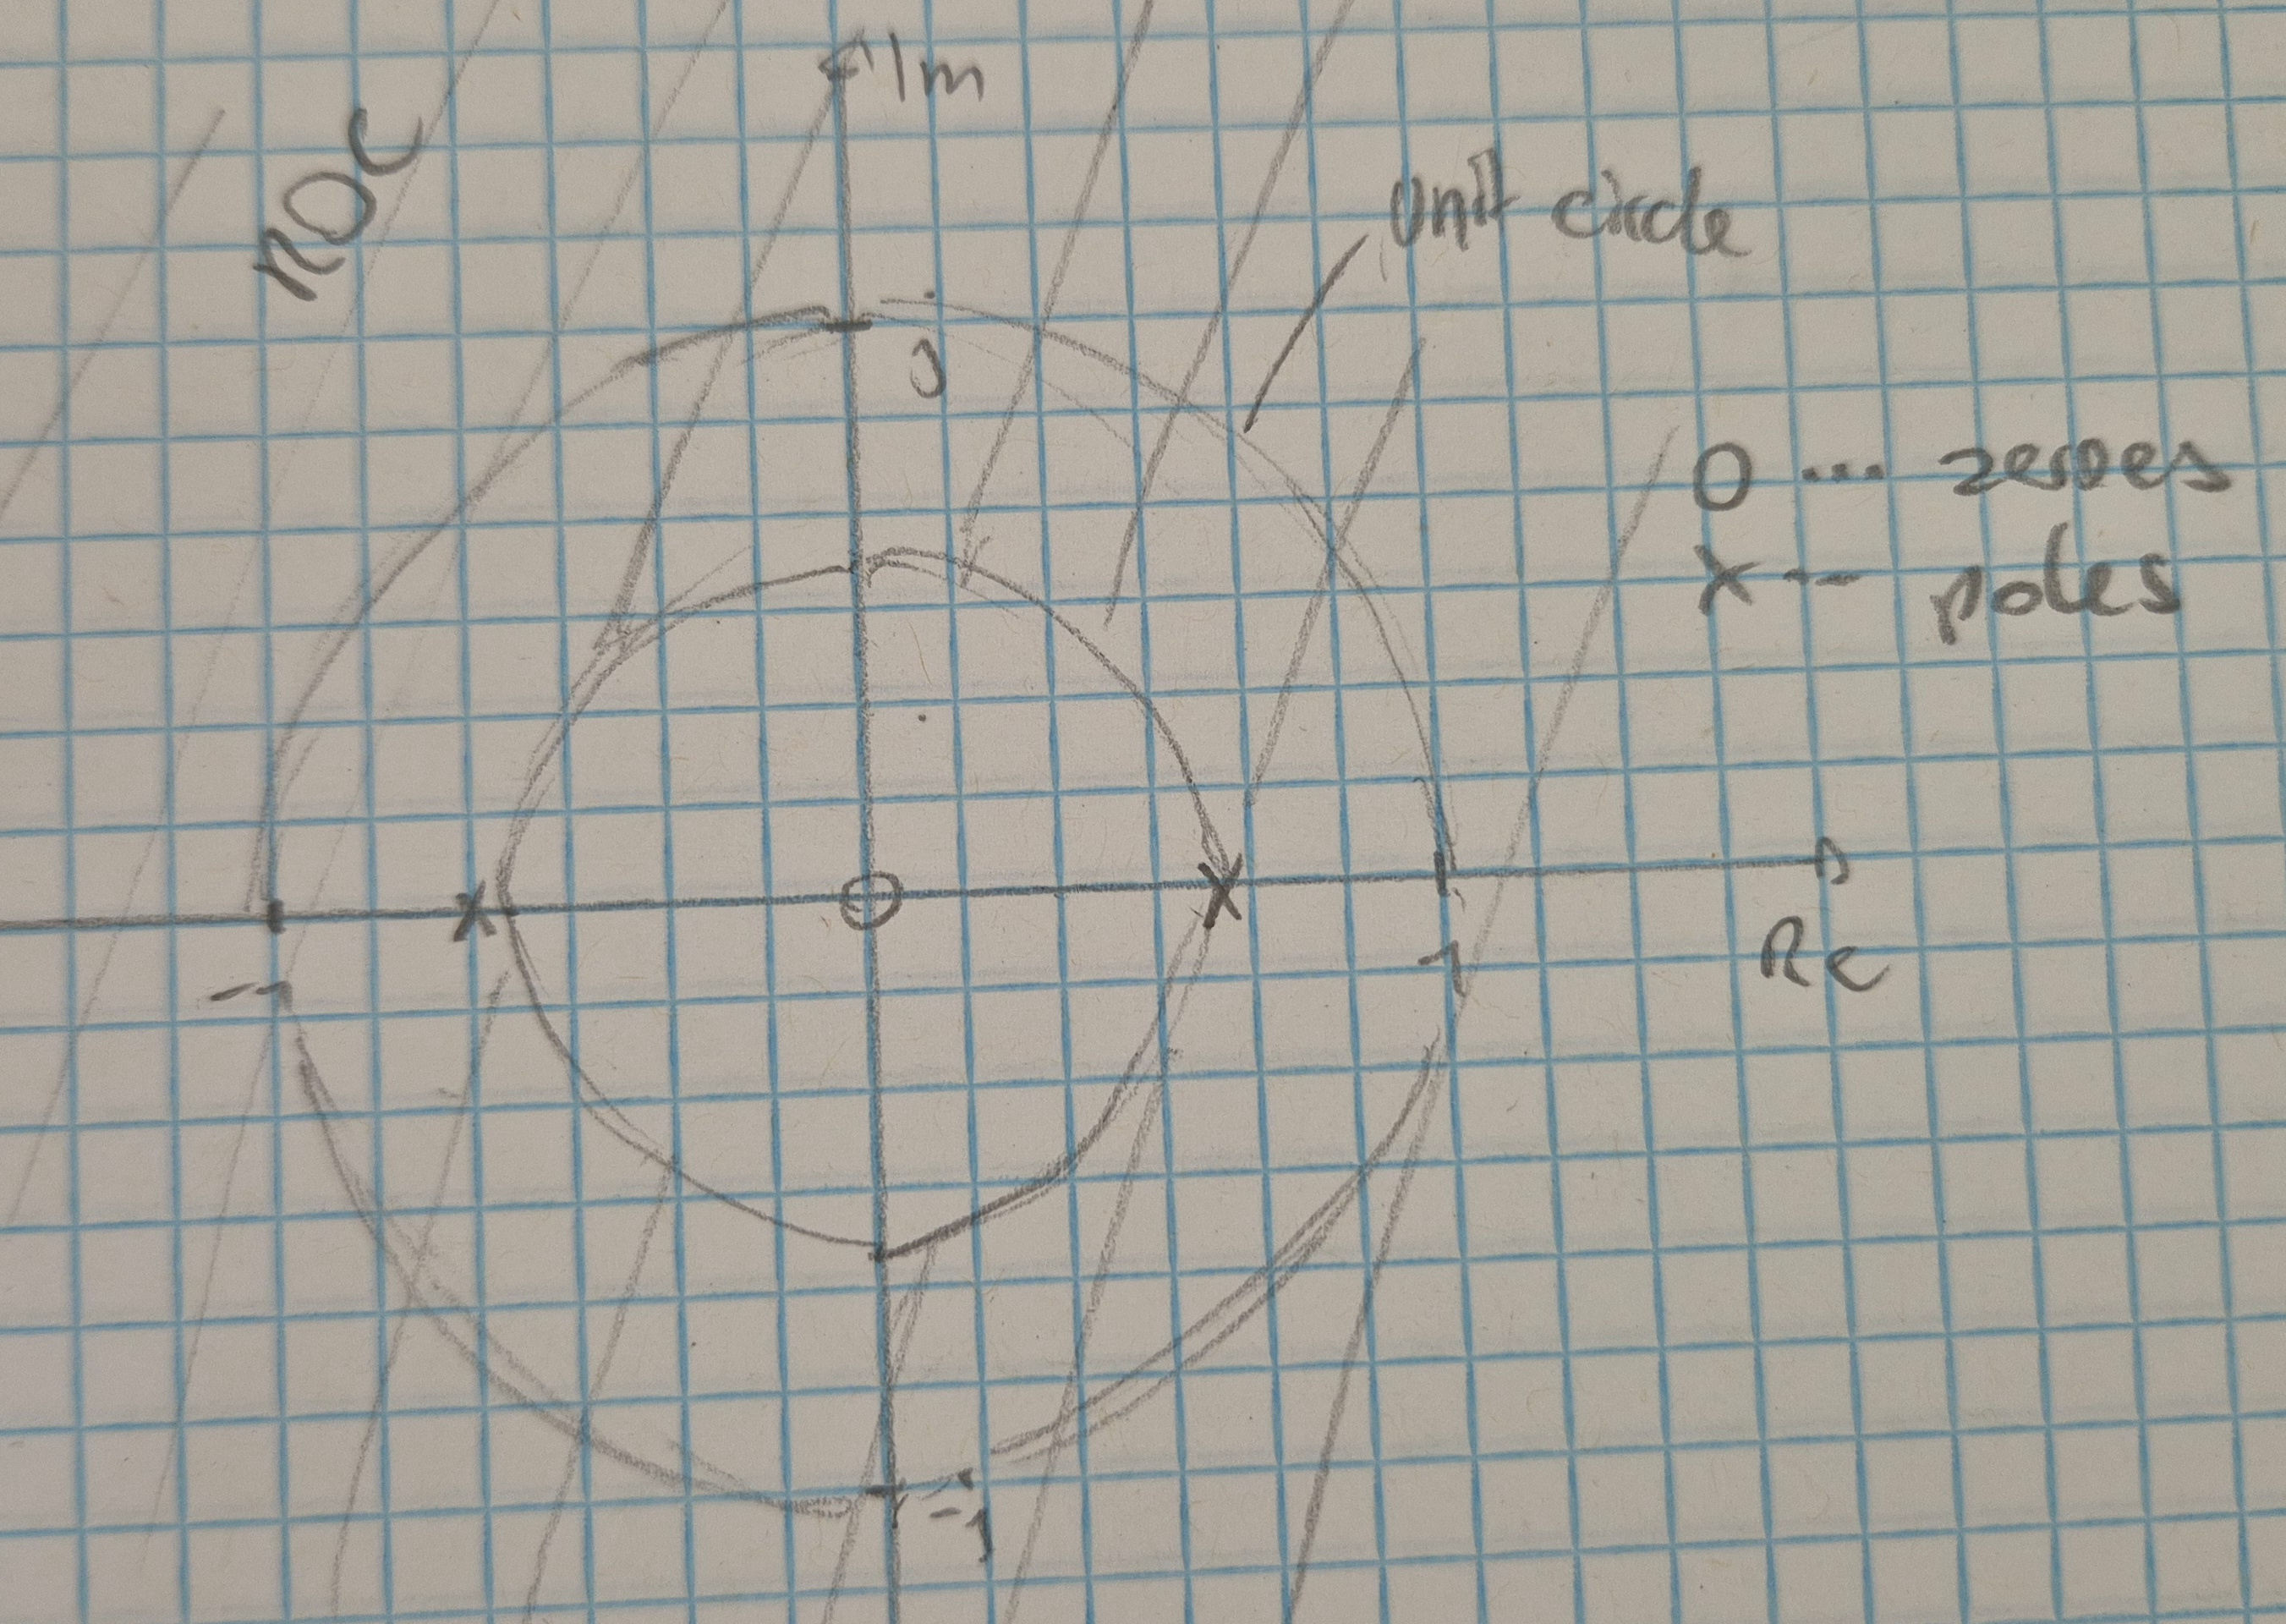 Im
ROC
Unit circle
j
O ... zeroes
X -- poles
X
O
X
-1
1
Re
-j